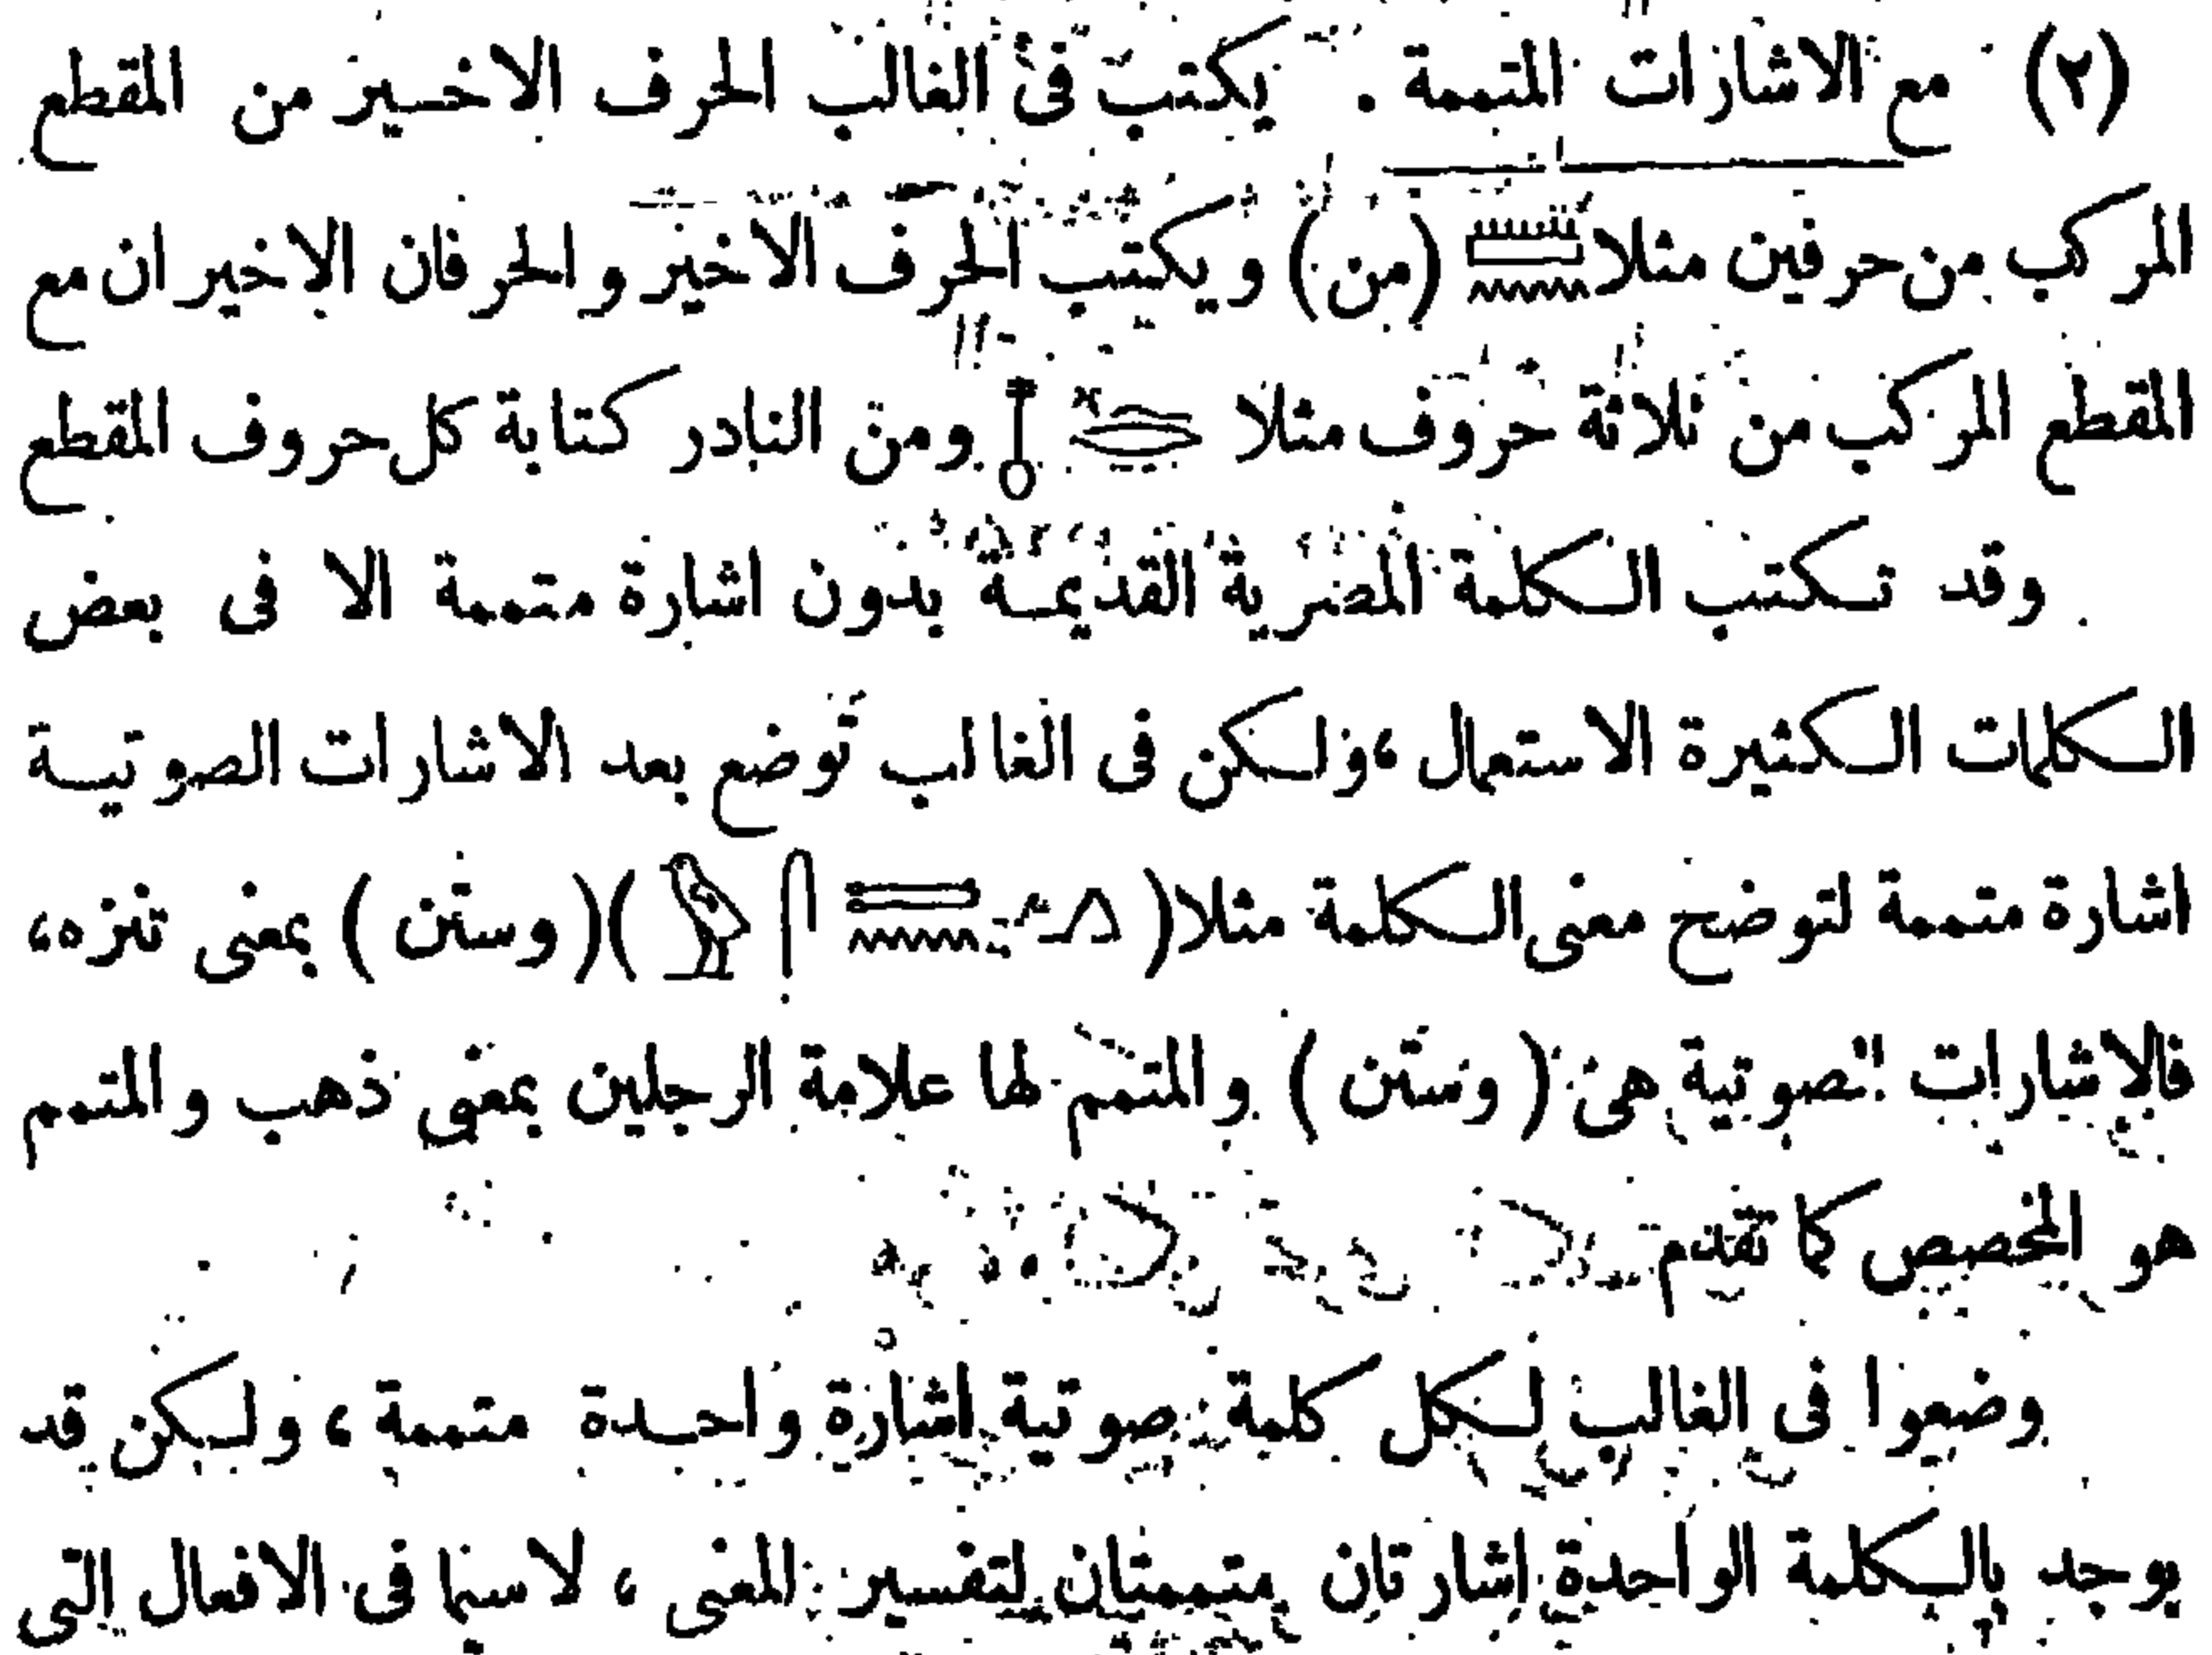 (٢) مع الاشارات المتممة . يكتب فى الغالب الحرف الاخير من المقطع
المركب من حرفين مثلا 𓏠𓈖 (من) ويكتب الحرف الاخير والحرفان الاخيران مع
المقطع المركب من ثلاثة حروف مثلا 𓄤 ومن النادر كتابة كل حروف المقطع
وقد تكتب الكلمة المصرية القديمة بدون اشارة متممة الا فى بعض
الكلمات الكثيرة الاستعمال ، ولكن فى الغالب توضع بعد الاشارات الصوتية
اشارة متممة لتوضح معنى الكلمة مثلا (𓅱𓋴𓍿𓈖𓂻) (وسثن) بمعنى تنزه ،
فالاشارات الصوتية هى (وسثن) والمتمم لها علامة الرجلين بمعنى ذهب والمتمم
هو المخصص كما تقدم
وضعوا فى الغالب لكل كلمة صوتية اشارة واحدة متممة ، ولكن قد
يوجد بالكلمة الواحدة اشارتان متممتان لتفسير المعنى ، لا سيما فى الافعال التى